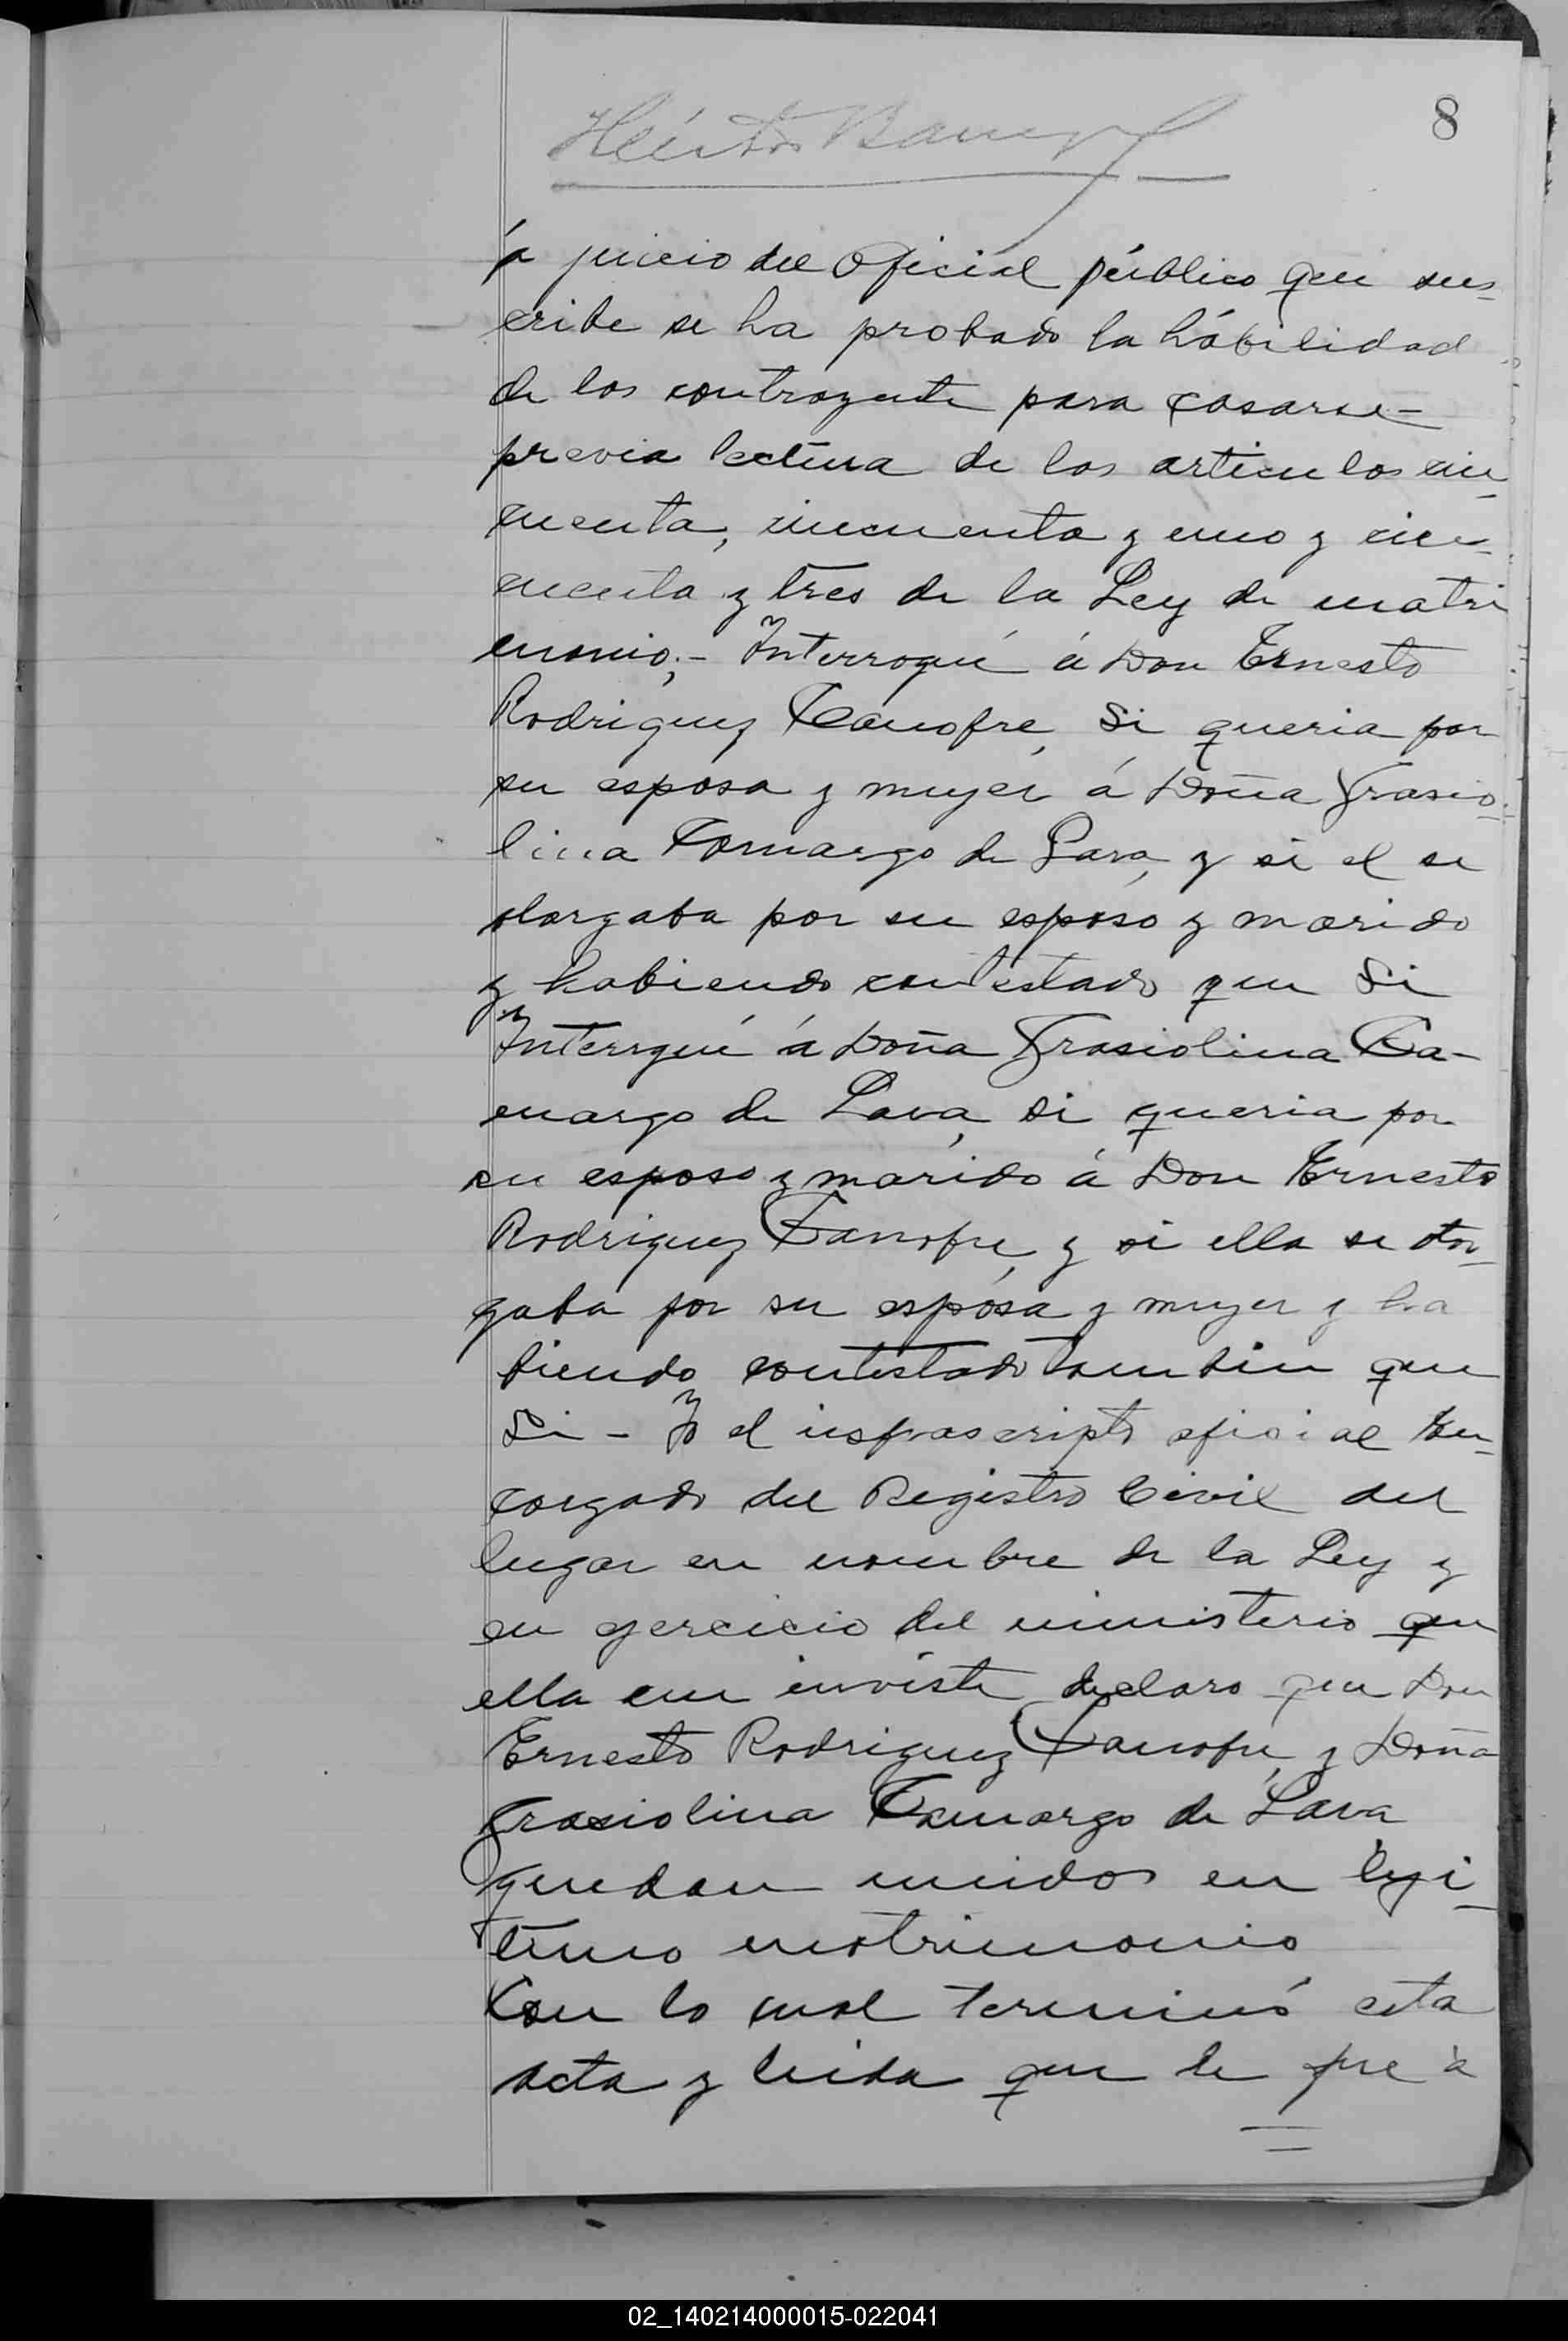 8
Héctor
á juicio del Oficial público que sus-
cribe se ha probado la hábilidad
de los contrayente para casarse-
previa lectura de los articulos cin-
cuenta, cincuenta y uno y cin-
cuenta y tres de la Ley de matri
monio;- Interrogué á Don Ernesto
Rodriguez Canofre, Si queria por
su esposa y mujer á Doña Grasio-
lina Camargo de Lara, y si el se
otorgaba por su esposo y marido
y habiendo contestado que Si
Interrgué á Doña Grasiolina Ca-
margo de Lara, si queria por
su esposo y marido á Don Ernesto
Rodriguez Canofre, y si ella se otor-
gaba por su esposa y mujer y ha
biendo contestado tambien que
Si - Yo el infrascripto oficial En-
cargado del Registro Civil del
lugar en nombre de la Ley y
en ejercicio del ministerio que
ella me inviste declaro que Don
Ernesto Rodriguez Canofre, y Doña
Grasiolina Camargo de Lara
quedan unidos en leji-
timo matrimonio
Con lo cual terminó esta
acta y leida que le fue á
02_140214000015-022041